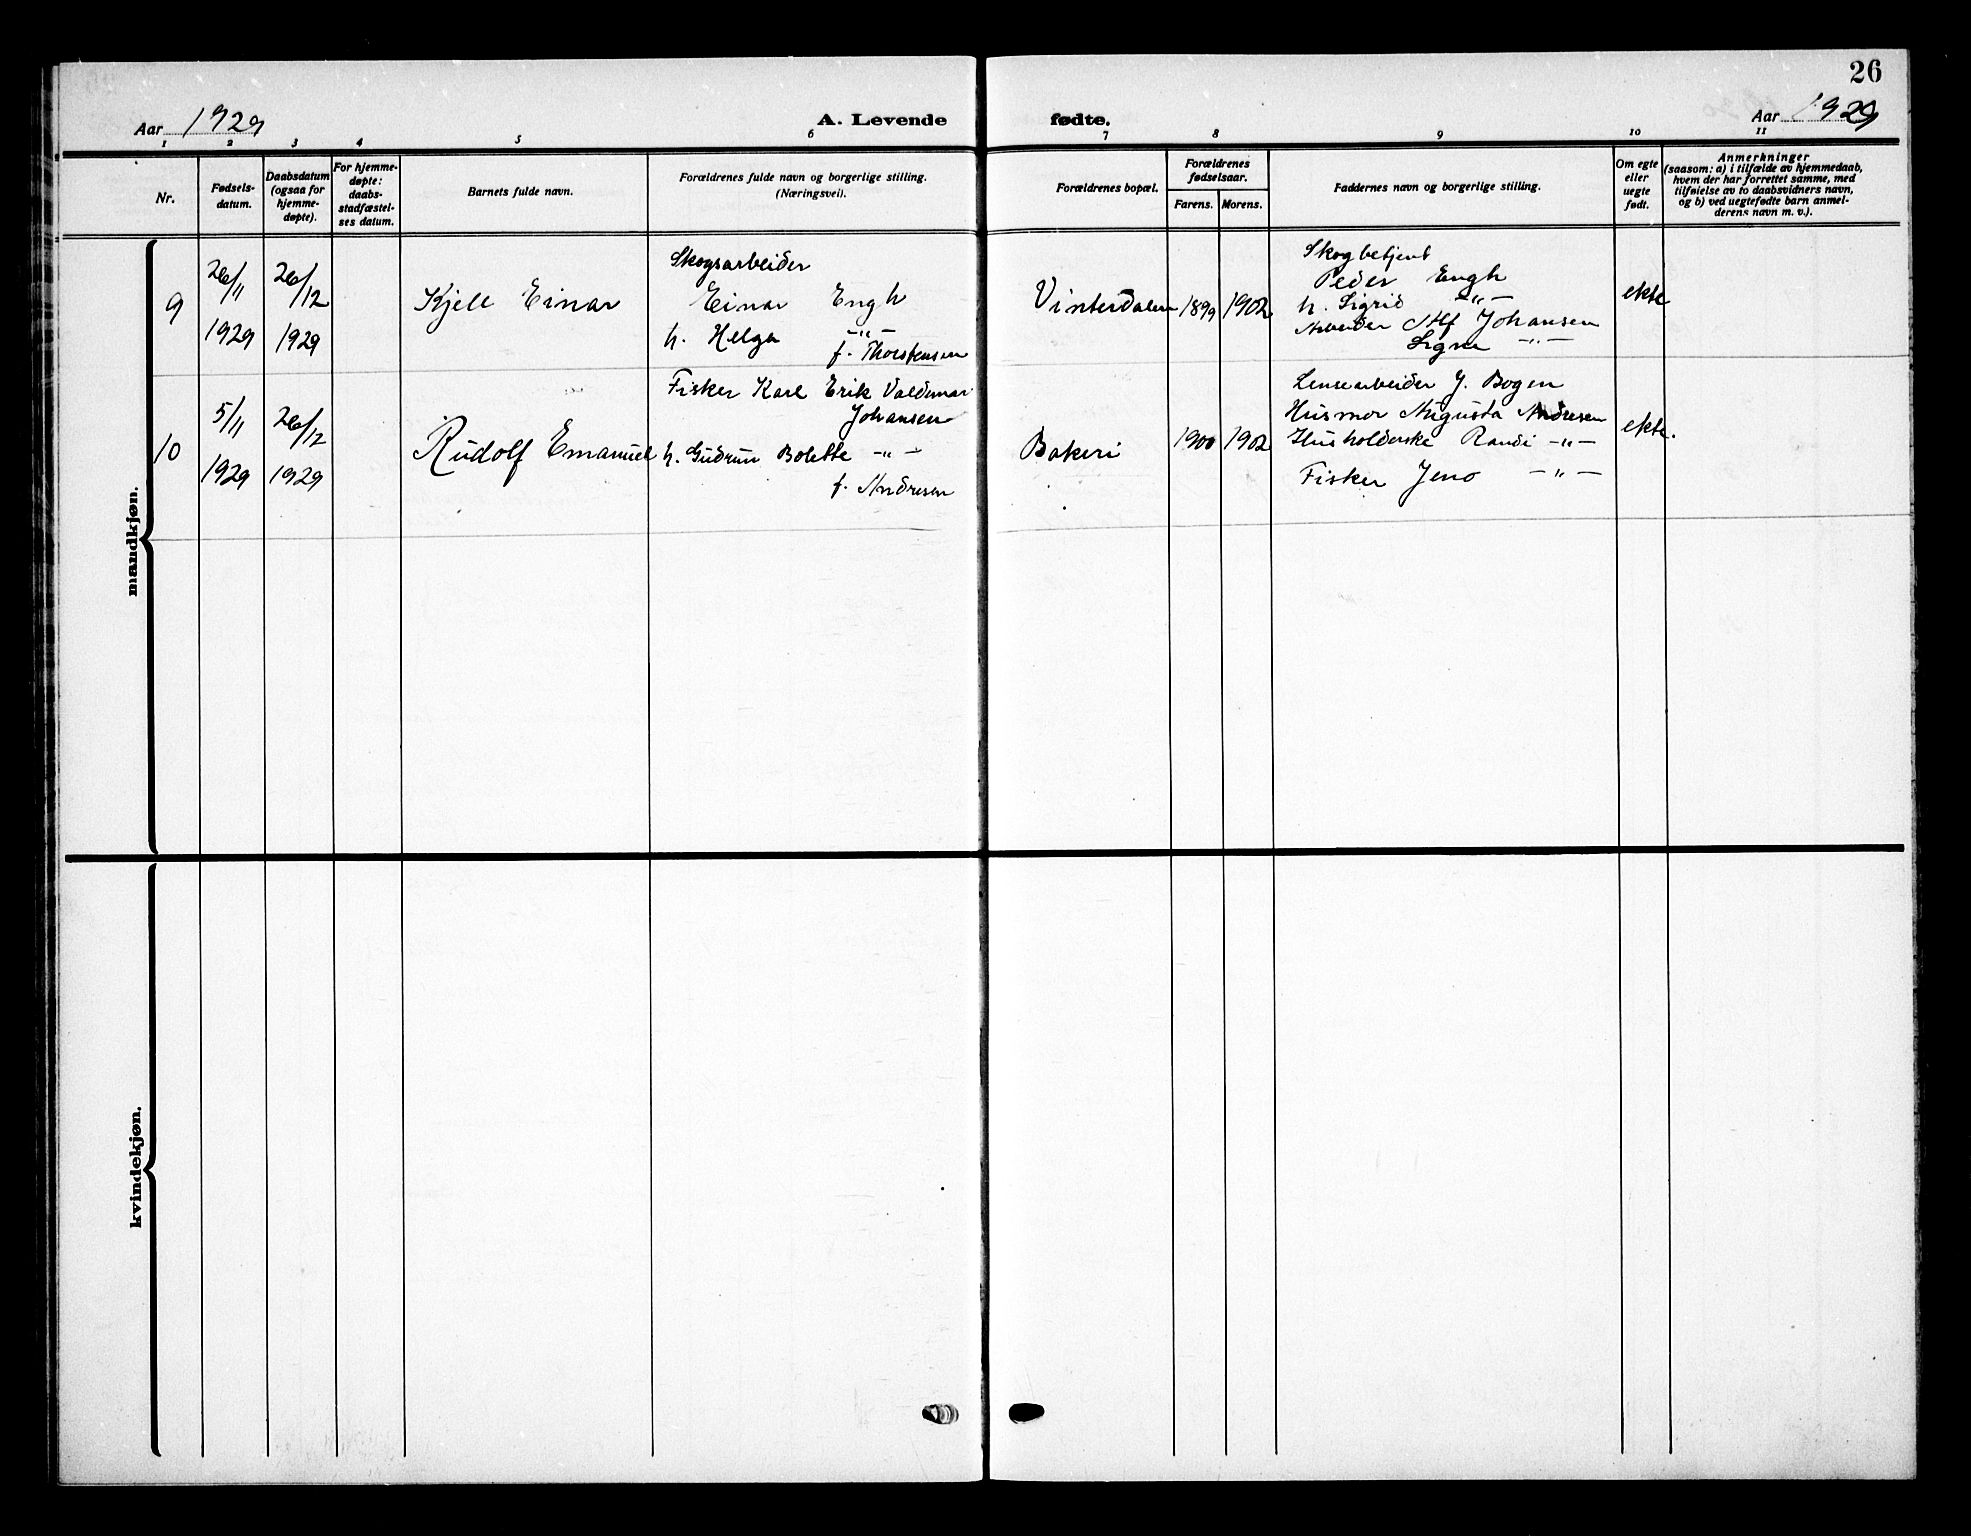 26
Aar 1929
A. Levende fødte.
Aar 1929
1 2 3 4 5 6 7 8 9 10 11
Nr.
Fødsels-
datum.
Daabsdatum
(ogsaa for
hjemme-
døpte).
For hjemme-
døpte:
daabs-
stadfæstel-
ses datum.
Barnets fulde navn.
Forældrenes fulde navn og borgerlige stilling.
(Næringsvei).
Forældrenes bopæl.
Forældrenes
fødselsaar.
Farens. Morens.
Faddernes navn og borgerlige stilling.
Om egte
eller
uegte
født.
Anmerkninger
(saasom: a) i tilfælde av hjemmedaab,
hvem der har forrettet samme, med
tilføielse av to daabsvidners navn,
og b) ved uegtefødte barn anmel-
derens navn m. v.).
mandkjøn.
9
26/11
1929
26/12
1929
Kjell Einar
Skogsarbeider
Einar Engh
h. Helga -"-
f. Thorstensen
Vinterdalen
1899
1902
Skogbetjent
Peder Engh
h. Sigrid -"-
Arbeider Alf Johansen
Signe -"-
ekte
10
5/11
1929
26/12
1929
Rudolf Emanuel
Fisker Karl Erik Valdemar
Johansen
h. Gudrun Bolette -"-
f. Andresen
Bakeri
1900
1902
Lensearbeider J. Bogen
Husmor Augusta Andresen
Husholderske Randi -"-
Fisker Jens -"-
ekte.
kvindekjøn.